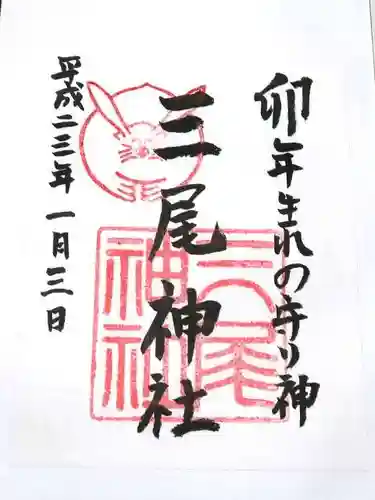 卯年生れの守り神
三尾神社
平成二三年一月三日
三尾神社